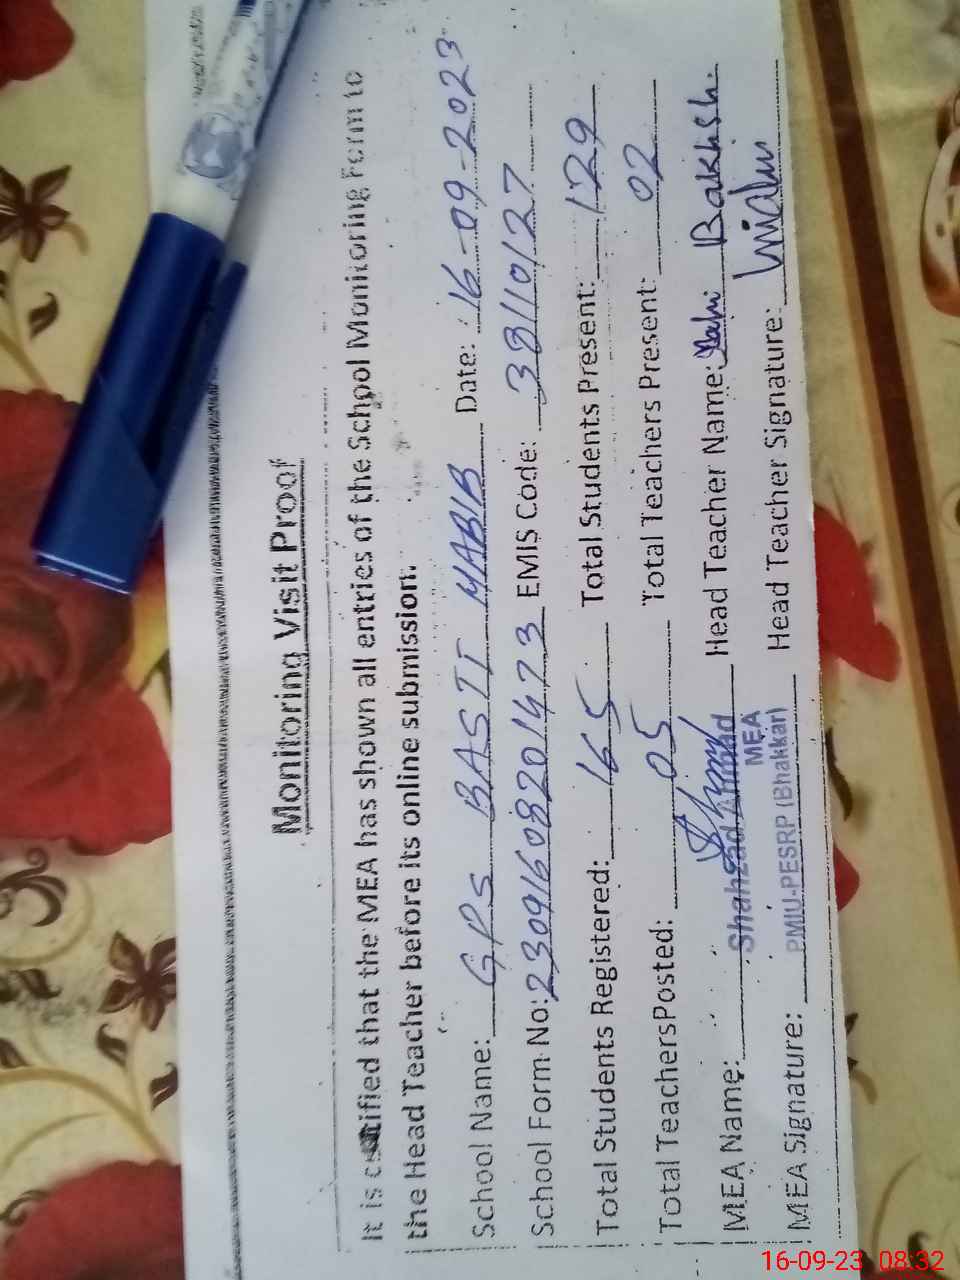 Monitoring Visit Proof
It is certified that the MEA has shown all entries of the School Monitoring Form to
the Head Teacher before its online submission.
School Name: GPS BASTI HABIB Date: 16-09-2023
School Form No: 23091608201473 EMIS Code: 38110127
Total Students Registered: 165 Total Students Present: 129
Total Teachers Posted: 05 Total Teachers Present: 02
MEA Name: Shahzad Ahmad Head Teacher Name: Bakhsh
MEA
MEA Signature: PMIU-PESRP (Bhakkar) Head Teacher Signature:
16-09-23 08:32